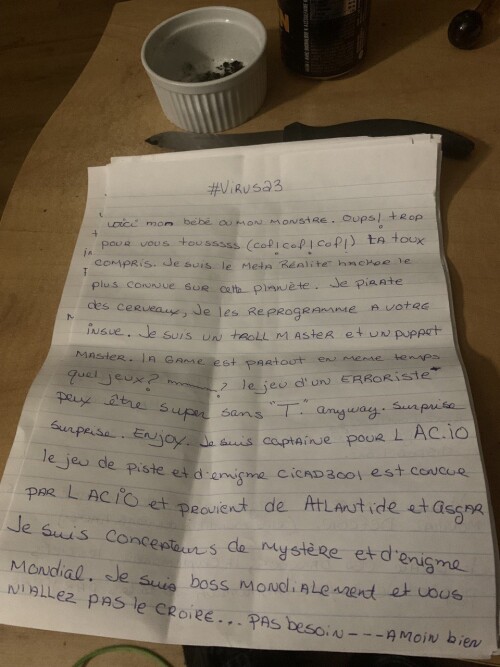 #Virus23
Voici mon bébé ou mon monstre. Oups! trop
pour vous toussssss (cof! cof! cof!) ta toux
compris. Je suis le Meta Réalité hacker le
plus connue sur cette planète. Je pirate
des cerveaux, Je les reprogramme a votre
insue. Je suis un troll master et un puppet
master. la game est partout en même temps
quel jeux? mmm? le jeu d'un ERRORiste
peux être super sans "T". anyway. Surprise
Surprise. Enjoy. Je suis captaine pour L AC.iO
le jeu de piste et d'énigme CiCAD3001 est concue
par L ACiO et provient de Atlantide et asgar
Je suis concepteurs de mystère et d'énigme
mondial. Je suis boss mondialement et vous
n'allez pas le croire... pas besoin --- amoin bien